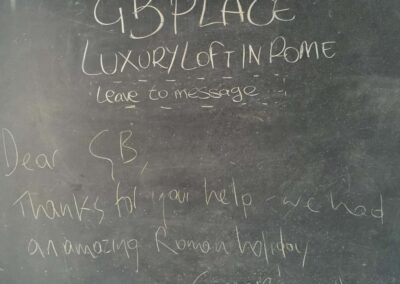 GB PLACE
LUXURY LOFT IN ROME
Leave to message
Dear GB,
Thanks for your help - we had
an amazing Roman holiday